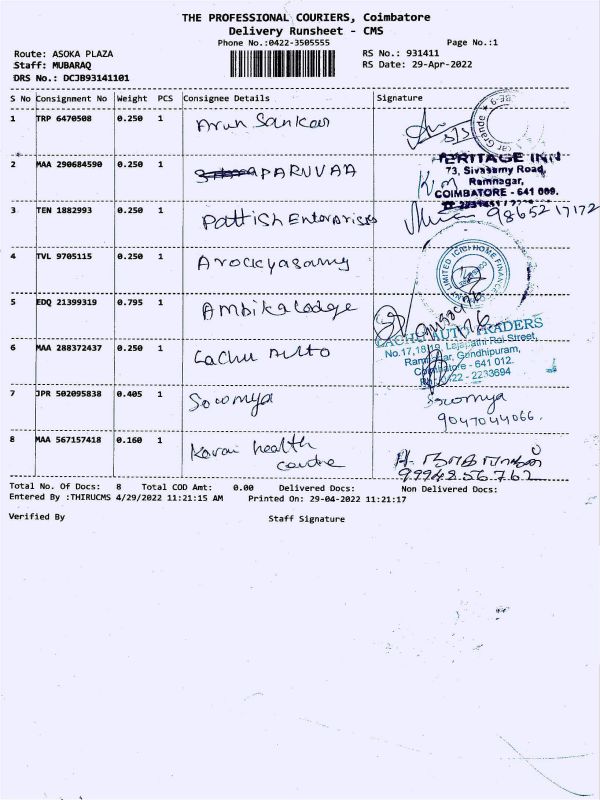 THE PROFESSIONAL COURIERS, Coimbatore
Delivery Runsheet - CMS
Phone No.:0422-3505555
Page No.:1
Route: ASOKA PLAZA
RS No.: 931411
Staff: MUBARAQ
RS Date: 29-Apr-2022
DRS No.: DCJB93141101
S No Consignment No Weight PCS Consignee Details Signature
1 TRP 6470508 0.250 1 Arun Sankar
2 MAA 290684590 0.250 1 PARUVAA
HERITAGE INN
73, Sivasamy Road,
Ramnagar,
COIMBATORE - 641 009.
3 TEN 1882993 0.250 1 Pattish Enterprises 9865217172
4 TVL 9705115 0.250 1 Arockyasamy
ICICI HOME FINANCE
5 EDQ 21399319 0.795 1 Ambika Lodge
6 MAA 288372437 0.250 1 Lachu Auto
LACHU AUTO TRADERS
No.17,18,19, Lajapathi Rai Street,
Ramnagar, Gandhipuram,
Coimbatore - 641 012.
0422 - 2233694
7 JPR 502095838 0.405 1 Sowmya Sowmya
9047044066.
8 MAA 567157418 0.160 1 Kovai health
centre
9994856762
Total No. Of Docs: 8 Total COD Amt: 0.00 Delivered Docs: Non Delivered Docs:
Entered By :THIRUCMS 4/29/2022 11:21:15 AM Printed On: 29-04-2022 11:21:17
Verified By Staff Signature